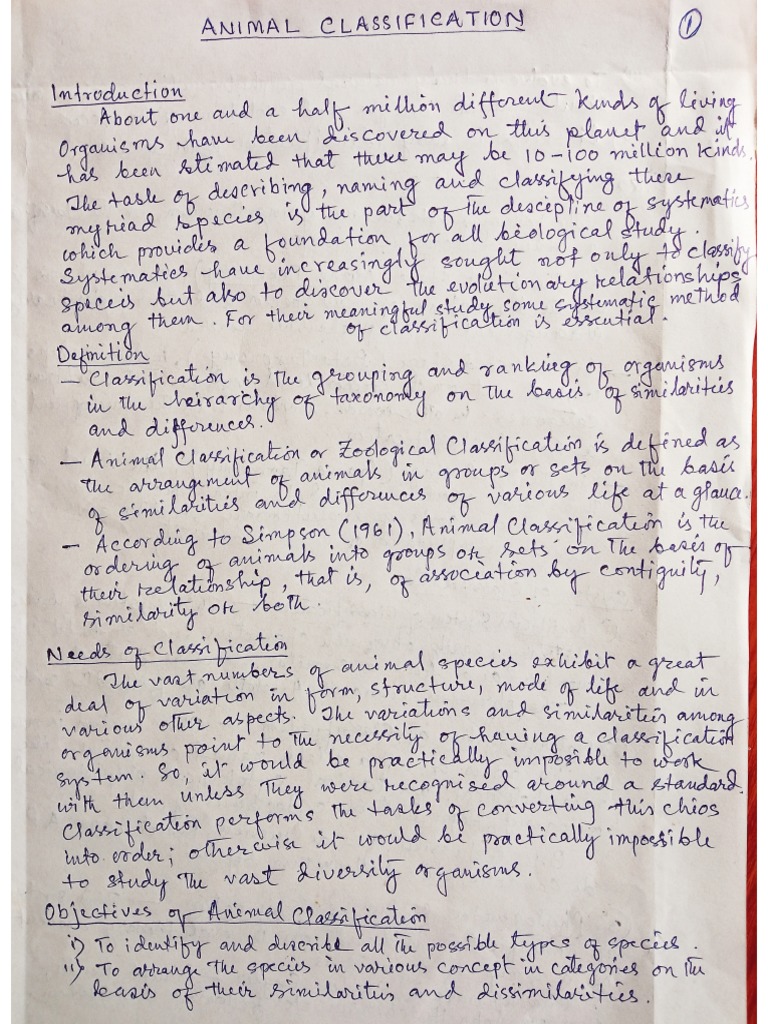 ANIMAL CLASSIFICATION
1
Introduction
About one and a half million different kinds of living
Organisms have been discovered on this planet and it
has been stimated that there may be 10-100 million kinds.
The task of describing, naming and classifying these
myriad species is the part of the descepline of systematics
which provides a foundation for all biological study.
Systematics have increasingly sought not only to classify
speceis but also to discover the evolutionary relationships
among them. For their meaningful study some systematic method
of classification is essential.
Definition
– Classification is the grouping and ranking of organisms
in the heirarchy of taxonomy on the basis of similarities
and differences.
– Animal Classification or Zoological Classification is defined as
the arrangement of animals in groups or sets on the basis
of similarities and differences of various life at a glance.
– According to Simpson (1961), Animal Classification is the
ordering of animals into groups or sets on the basis of
their relationship, that is, of association by contiguity,
similarity or both.
Needs of Classification
The vast numbers of animal species exhibit a great
deal of variation in form, structure, mode of life and in
various other aspects. The variations and similarities among
organisms point to the necessity of having a classification
system. So, it would be practically imposible to work
with them unless they were recognised around a standard.
Classification performs the tasks of converting this chios
into order; otherwise it would be practically impossible
to study the vast diversity organisms.
Objectives of Animal Classification
i) To identify and describe all the possible types of species.
ii) To arrange the species in various concept in categories on the
basis of their similarities and dissimilarities.